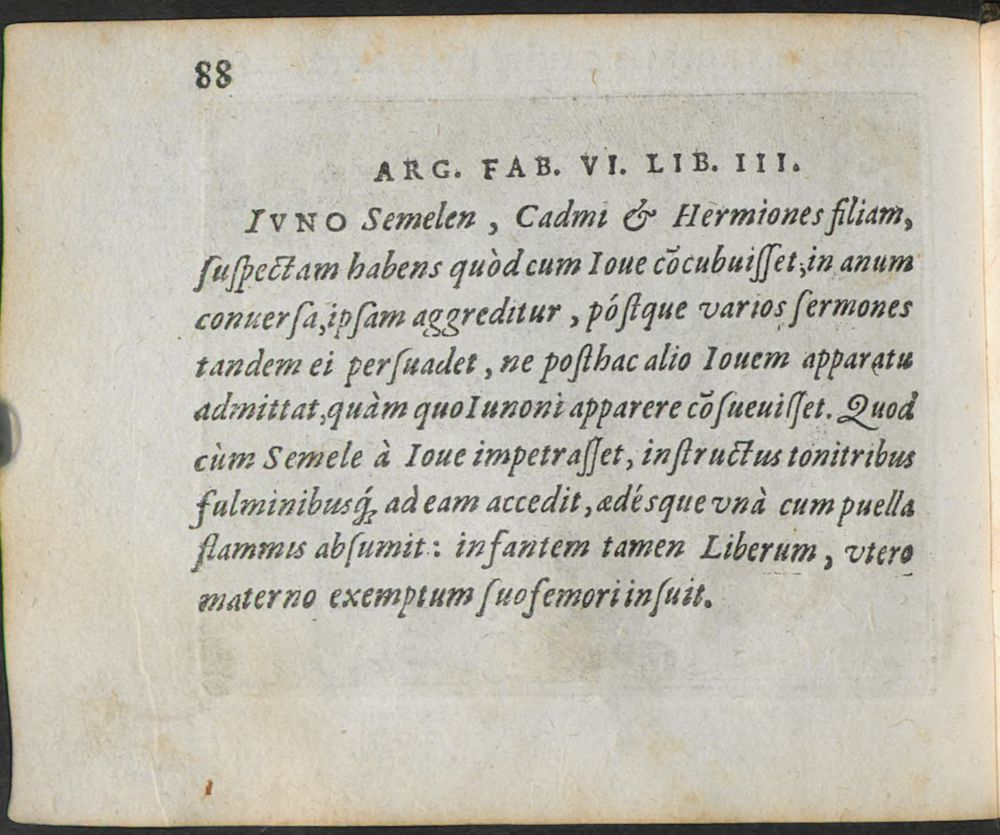 88
ARG. FAB. VI. LIB. III.
IVNO Semelen, Cadmi & Hermiones filiam,
ſuſpectam habens quòd cum Ioue cõcubuiſſet, in anum
conuerſa, ipſam aggreditur, póſtque varios ſermones
tandem ei perſuadet, ne poſthac alio Iouem apparatu
admittat, quàm quo Iunoni apparere cõſueuiſſet. Quod
cùm Semele à Ioue impetraſſet, inſtructus tonitribus
fulminibusq́; ad eam accedit, ædésque vnà cum puella
flammis abſumit: infantem tamen Liberum, vtero
materno exemptum ſuo femori inſuit.